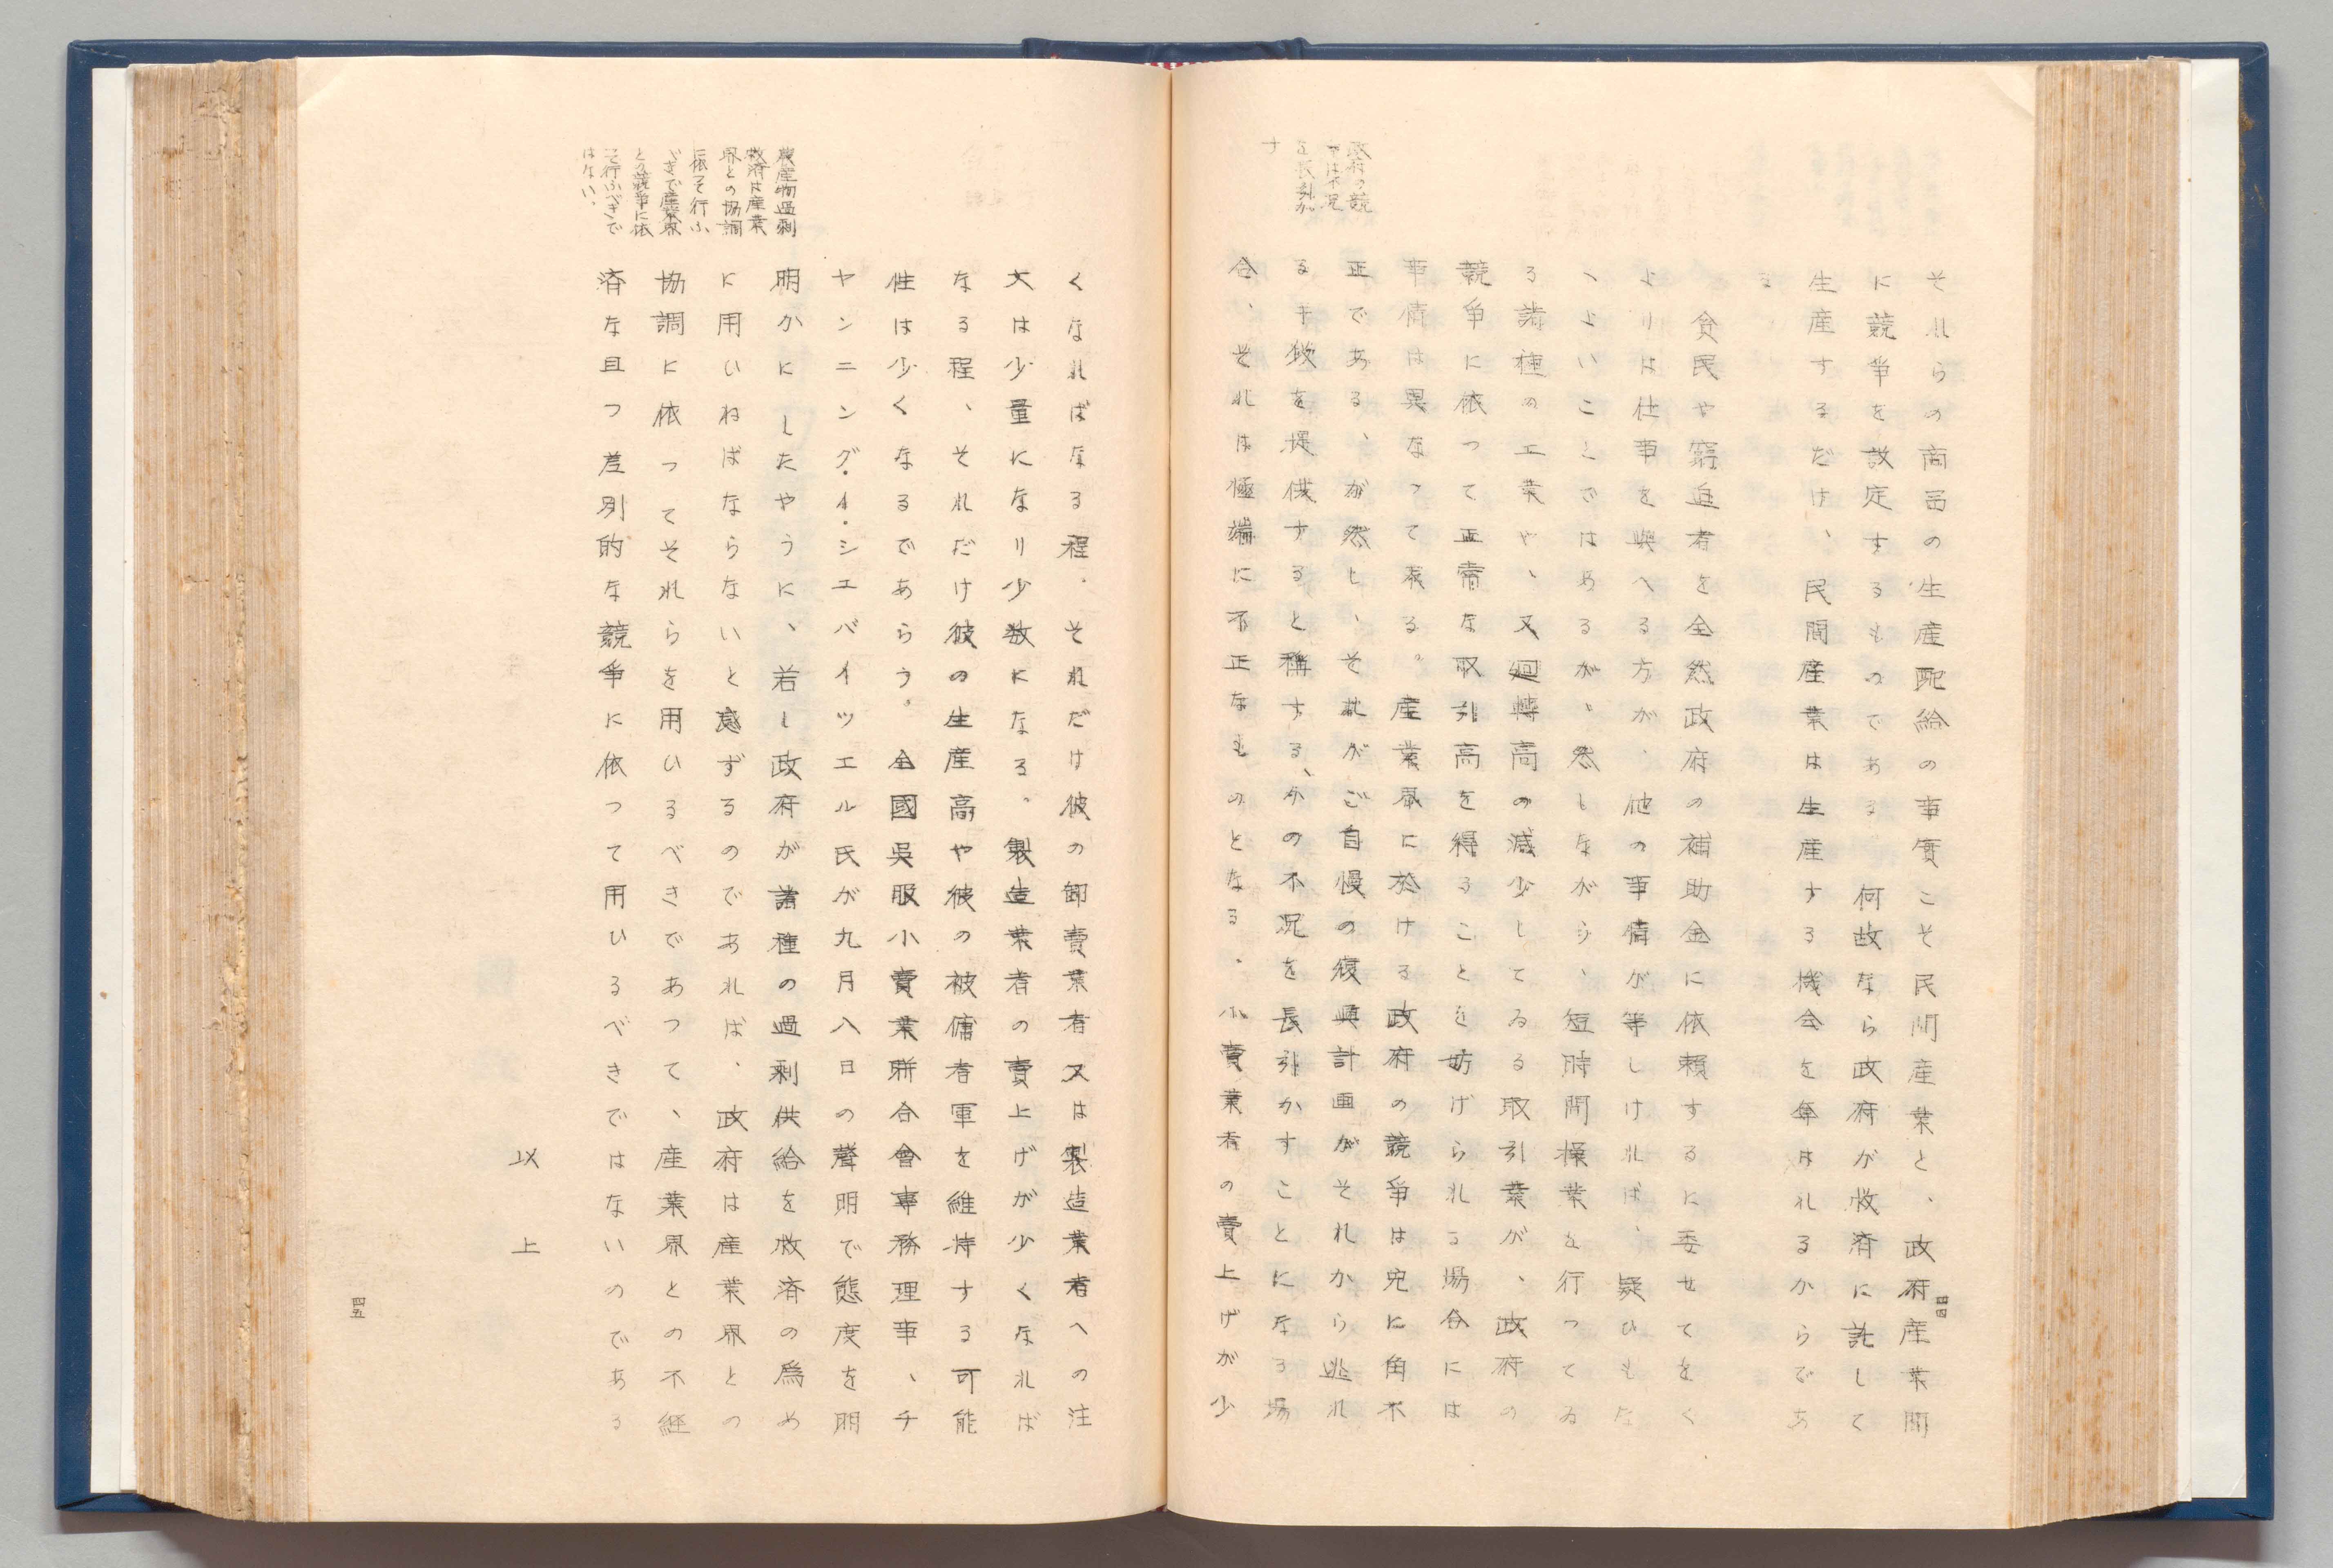 四四
それらの商品の生産配給の事實こそ民間産業と、政府産業間
に競争を設定するものである 何故なら政府が救済に託して
生産するだけ、民間産業は生産する機会を奪はれるからであ
る
貧民や窮迫者を全然政府の補助金に依頼するに委せてをく
よりは仕事を與へる方が、他の事情が等しければ、疑ひもな
くよいことではあるが、然しながら、短時間操業を行つてゐ
る諸種の工業や、又廻轉高の減少してゐる取引業が、政府の
競争に依つて正常な取引高を得ることを妨げられる場合には
事情は異なつて來る。産業界に於ける政府の競争は兎に角不
正である、が然し、それがご自慢の復興計画がそれから逃れ
る手段を提供すると稱する、かの不況を長引かすことになる場
合、それは極端に不正なものとなる、小賣業者の賣上げが少
政府の競
争は不況
を長引か
す
くなればなる程、それだけ彼の卸賣業者又は製造業者への注
文は少量になり少数になる。製造業者の賣上げが少くなれば
なる程、それだけ彼の生産高や彼の被傭者軍を維持する可能
性は少くなるであらう。全國呉服小賣業聯合會事務理事、チ
ヤンニング・イ・シエバイツエル氏が九月八日の聲明で態度を明
明かにしたやうに、若し政府が諸種の過剰供給を救済の爲め
に用いねばならないと感ずるのであれば、政府は産業界との
協調に依つてそれらを用ひるべきであつて、産業界との不経
済な且つ差別的な競争に依つて用ひるべきではないのである
以上
農産物過剰
救済は産業
界との協調
に依て行ふ
べきで産業界
との競争に依
て行ふべきで
はない。
四五